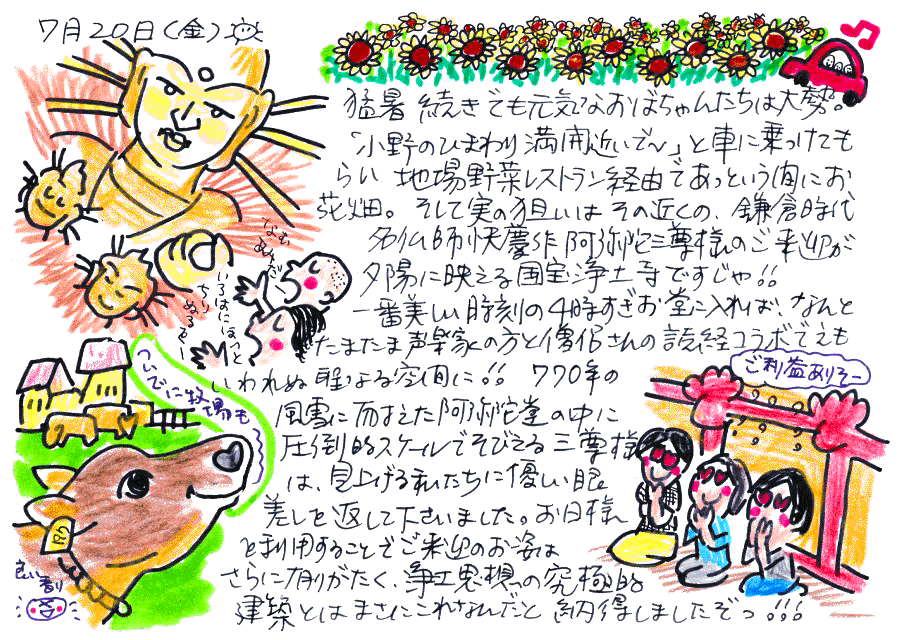 7月20日(金)
猛暑続きでも元気なおばちゃんたちは大勢。
「小野のひまわり満開近いで〜」と車に乗っけても
らい 地場野菜レストラン経由であっという間にお
花畑。そして実の狙いはその近くの、鎌倉時代
名仏師快慶作阿弥陀三尊様のご来迎が
夕陽に映える国宝浄土寺ですじゃ!!
一番美しい時刻の4時すぎお堂に入れば、なんと
たまたま声楽家の方と僧侶さんの読経コラボでえも
いわれぬ聖なる空間に!! 770年の
風雪に耐えた阿弥陀堂の中に
圧倒的スケールでそびえる三尊様
は、見上げる私たちに優しい眼
差しを返して下さいました。お日様
を利用することでご来迎のお姿は
さらに有りがたく、浄土思想の究極的
建築とはまさにこれなんだと納得しましたぞっ!!!
なむ
あみだ
いろはにほへと
ちり
ぬるを〜
ついでに牧場も
ご利益ありそー
良い
香り